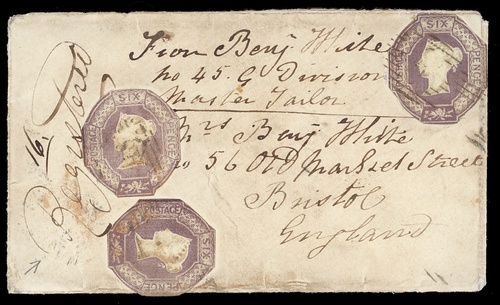 From Benj White
no 45. G Division
Master Tailor
Mrs Benj White
no 56 Old Market Street
Bristol
England
Registered
16
SIX PENCE
POSTAGE SIX PENCE
POSTAGE SIX PENCE